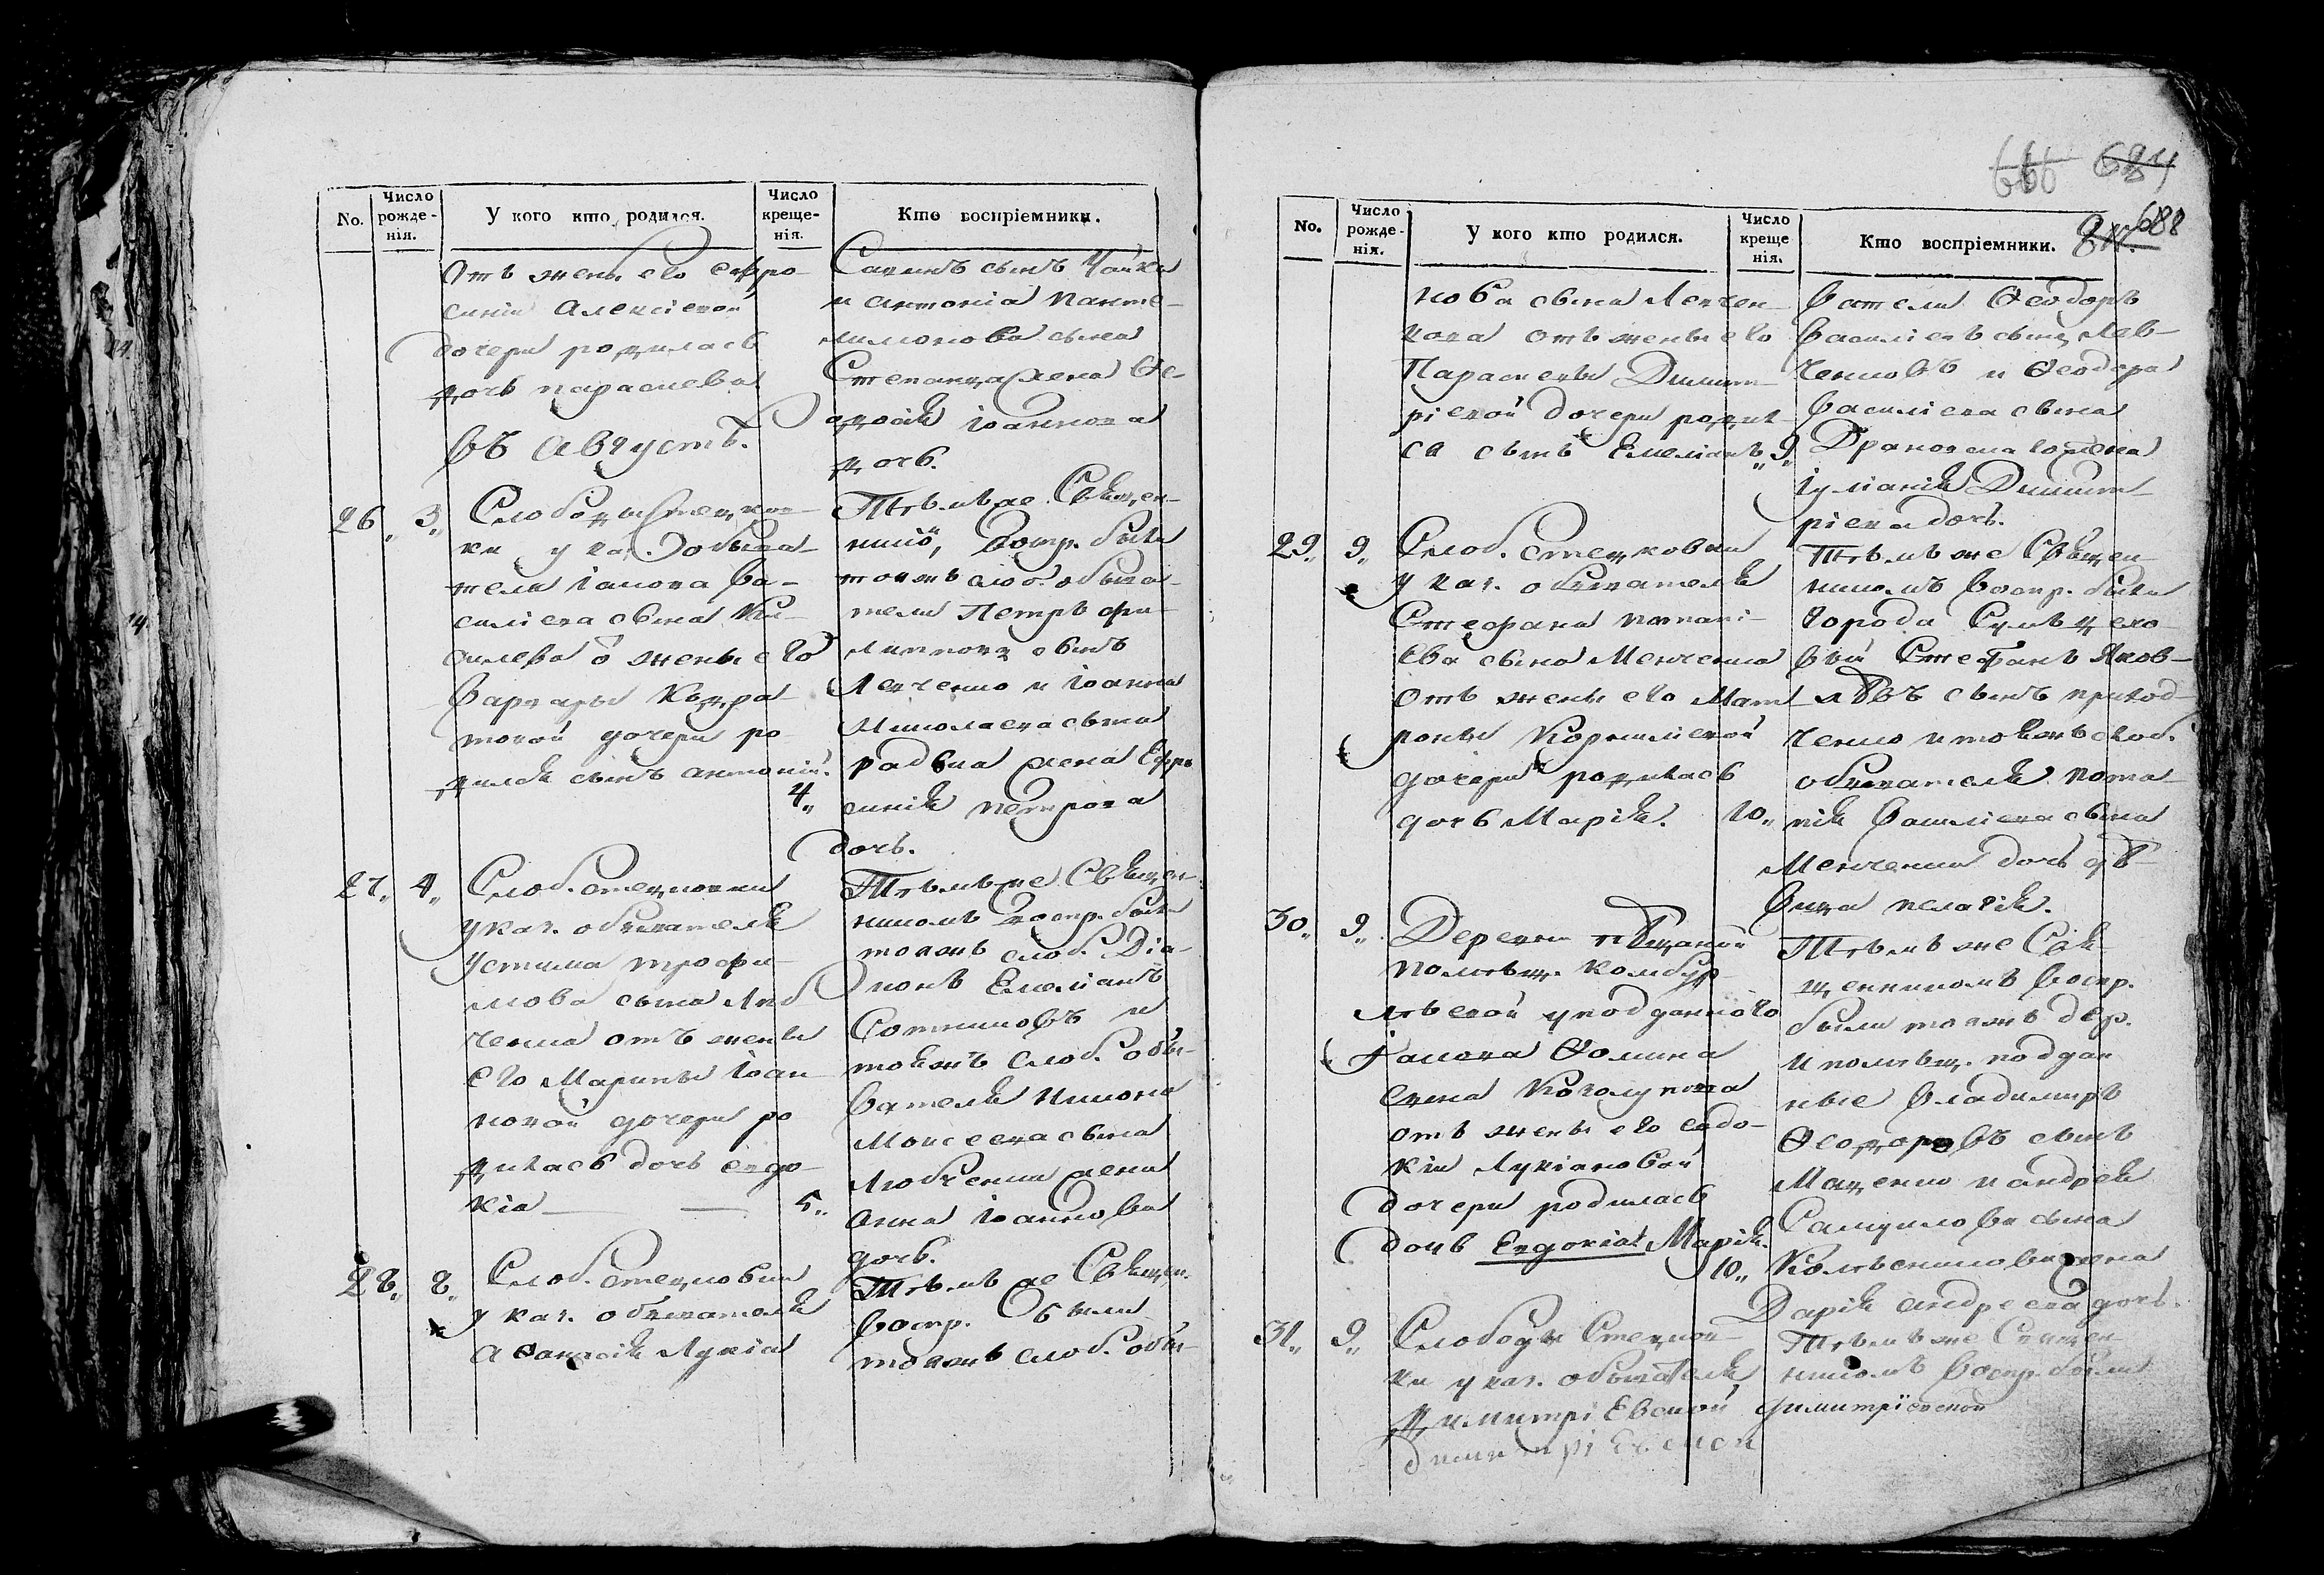 No.
Число рожде-
нія.
У кого кто родился.
Число креще-
нія.
Кто воспріемники.
отъ жены его Евфро-
синіи Алексіевой
дочери родилась
дочь параскева
въ Августѣ.
Савинъ сынъ
и антоніа панте-
лимонова сына
жена Ѳе-
одосія іоаннова
дочь.
26 3
Слободы Стецков-
ки указ. обыва-
теля іакова Ва-
силіева сына
жены его
варвары Кодра-
товой дочери ро-
дился сынъ антоній.
4
Тѣмъ же Священ-
никомъ, воспр. были
тояжъ слоб. обыва-
тели Петръ фи-
липповъ сынъ
Левченко и іоанна
Николаева сына
жена Евфро
синія петрова
дочь.
27 4
Слоб. стецковки
указ. обывателя
устима трофи-
мова сына Люб
ченка отъ жены
его Марины іоан
новой дочери ро
дилась дочь евдо-
кія
5
Тѣмъ же Священ-
никомъ воспр. были
тояжъ слоб. Діа-
конъ Емеліанъ
Сотниковъ и
тояжъ слоб. обы-
вателя
Моисеева сына
Любченка жена
Анна іоаннова
дочь.
28 8
Слоб. стецковки
указ. обывателя
аѳанасія Лукіа
Тѣмъ же Священ.
воспр. были
тояжъ слоб. обы-
666 684
688
No.
Число рожде-
нія.
У кого кто родился.
Число креще
нія.
Кто воспріемники.
нова сына Левчен-
кова отъ жены его
Параскевы Димит-
ріевой дочери родил
ся сынъ Емеліанъ 9
ватели Ѳеодоръ
василіевъ сынъ Лев-
ченковъ и Ѳеодора
василіева сына
жена
іуліанія Димит-
ріева дочь.
29 9
Слоб. стецковки
указ. обывателя
Стефана потапі-
ева сына Менченка
отъ жены его Мат
роны Корниліевой
дочери родилась
дочь Марія. 10
Тѣмъ же Священ-
никомъ воспр. были
города Сумъ цехо-
вый Стефанъ Яков-
левъ сынъ приход-
ченко и тояжъ слоб.
обывателя пота-
пія василіева сына
Менченка дочь дѣ-
вица пелагія.
30 9
Деревни пѣщаной
помѣщ. Комбур-
лѣевой у подданнаго
іакова Ѳомина
сына
отъ жены его евдо-
кіи Лукіановой
дочери родилась
дочь Евдокіа Марія.
10
Тѣмъ же Свя
щенникомъ воспр.
были тояжъ дер.
и помѣщ. поддан
ные владимиръ
Ѳеодоровъ сынъ
Маценко и андрея
Самуилова сына
жена
Дарія андреева дочь.
31 9
Слободы Стецков-
ки указ. обывателя
димитріевской
димитріевской
Тѣмъ же Священ-
никомъ воспр. были
димитріевской